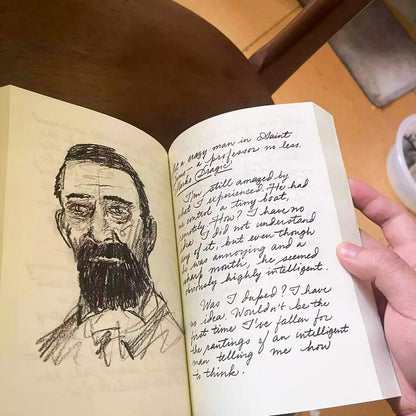 a crazy man in Saint
a professor no less.
Dragic
I'm still amazed by
what I experienced. He had
control a tiny boat,
remotely. How? I have no
idea. I did not understand
any of it, but even though
he was annoying and a
sharp mouth, he seemed
obviously highly intelligent.
Was I duped? I have
no idea. Wouldn't be the
first time I've fallen for
the rantings of an intelligent
man telling me how
to think.